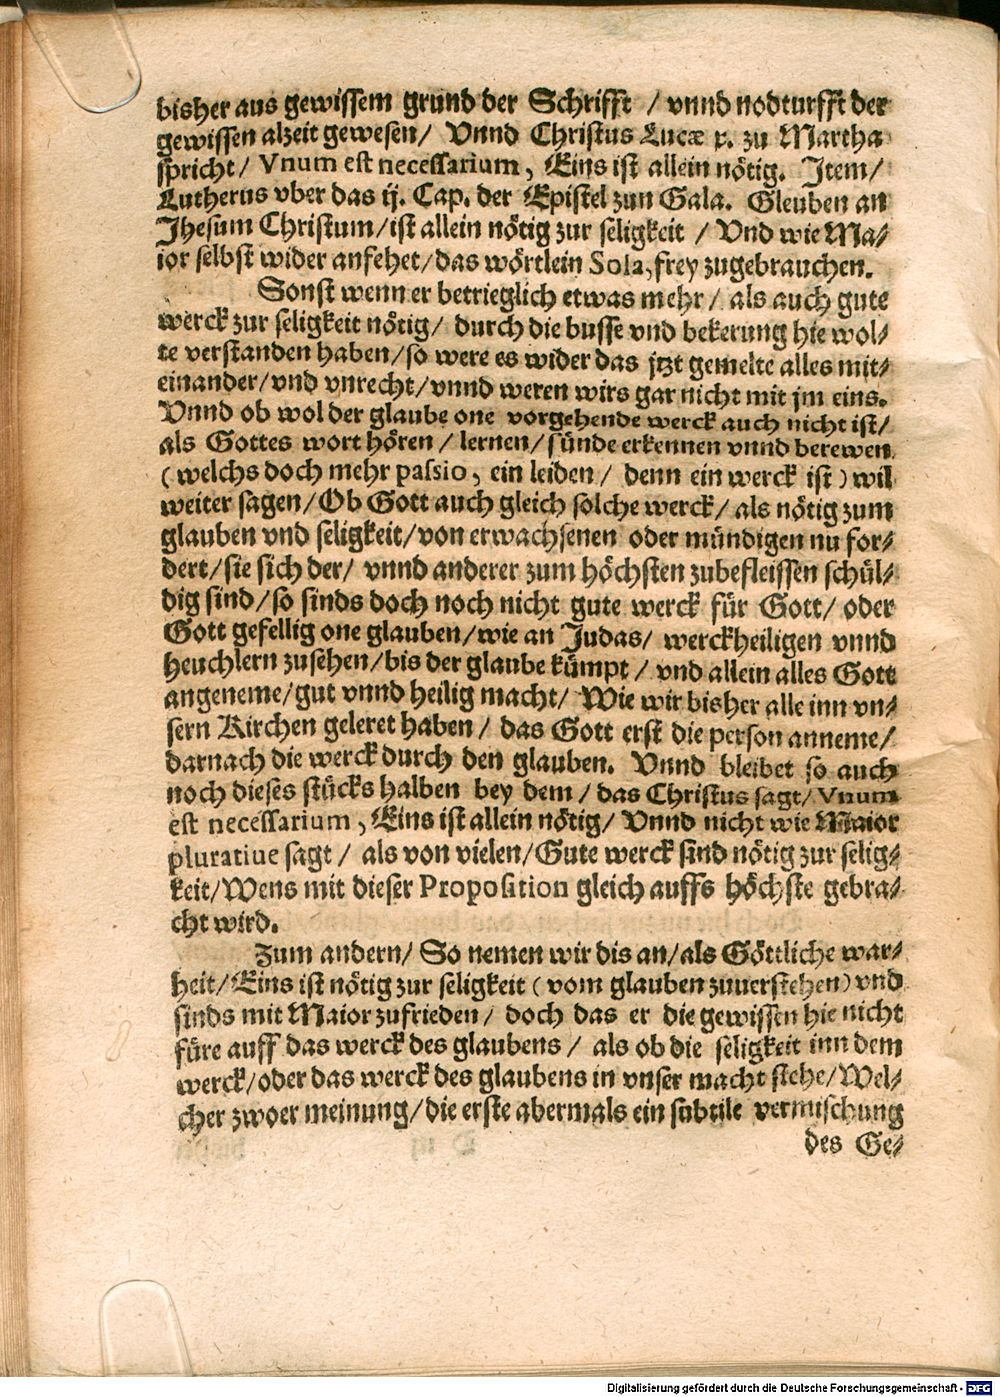 bisher aus gewissem grund der Schrifft / vnnd nodturfft der
gewissen alzeit gewesen / Vnnd Christus Lucæ x. zu Martha
spricht / Vnum est necessarium, Eins ist allein nötig. Item /
Lutherus vber das ij. Cap. der Epistel zun Gala. Gleuben an
Jhesum Christum / ist allein nötig zur seligkeit / Vnd wie Ma⸗
ior selbst wider anfehet / das wörtlein Sola, frey zugebrauchen.
Sonst wenn er betrieglich etwas mehr / als auch gute
werck zur seligkeit nötig / durch die busse vnd bekerung hie wol⸗
te verstanden haben / so were es wider das jtzt gemelte alles mit⸗
einander / vnd vnrecht / vnnd weren wirs gar nicht mit jm eins.
Vnnd ob wol der glaube one vorgehende werck auch nicht ist /
als Gottes wort hören / lernen / sünde erkennen vnnd berewen
( welchs doch mehr passio, ein leiden / denn ein werck ist ) wil
weiter sagen / Ob Gott auch gleich solche werck / als nötig zum
glauben vnd seligkeit / von erwachsenen oder mündigen nu for⸗
dert / sie sich der / vnnd anderer zum höchsten zubefleissen schül⸗
dig sind / so sinds doch noch nicht gute werck für Gott / oder
Gott gefellig one glauben / wie an Judas / werckheiligen vnnd
heuchlern zusehen / bis der glaube kümpt / vnd allein alles Gott
angeneme / gut vnnd heilig macht / Wie wir bisher alle inn vn⸗
sern Kirchen geleret haben / das Gott erst die person anneme /
darnach die werck durch den glauben. Vnnd bleibet so auch
noch dieses stücks halben bey dem / das Christus sagt / Vnum
est necessarium, Eins ist allein nötig / Vnnd nicht wie Maior
pluratiue sagt / als von vielen / Gute werck sind nötig zur selig⸗
keit / Wens mit dieser Proposition gleich auffs höchste gebra⸗
cht wird.
Zum andern / So nemen wir dis an / als Göttliche war⸗
heit / Eins ist nötig zur seligkeit ( vom glauben zuuerstehen ) vnd
sinds mit Maior zufrieden / doch das er die gewissen hie nicht
füre auff das werck des glaubens / als ob die seligkeit inn dem
werck / oder das werck des glaubens in vnser macht stehe / Wel⸗
cher zwoer meinung / die erste abermals ein subtile vermischung
des Ge⸗
Digitalisierung gefördert durch die Deutsche Forschungsgemeinschaft - DFG